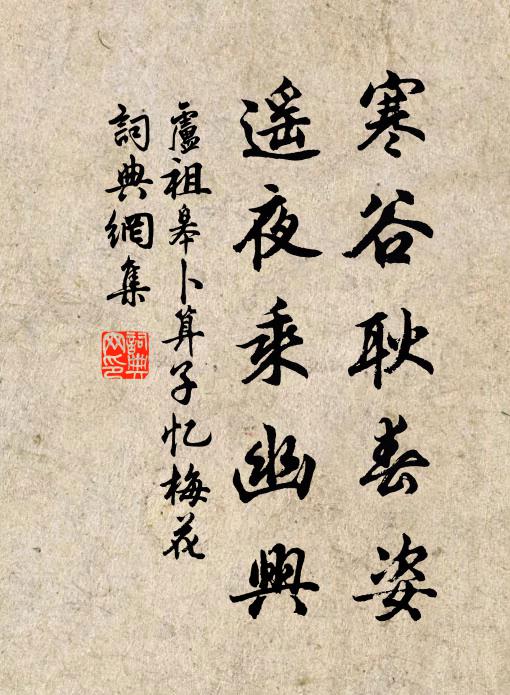 寒谷耿春姿
遥夜乘幽興
盧祖皋卜算子忆梅花
詞典網集
詞典網印